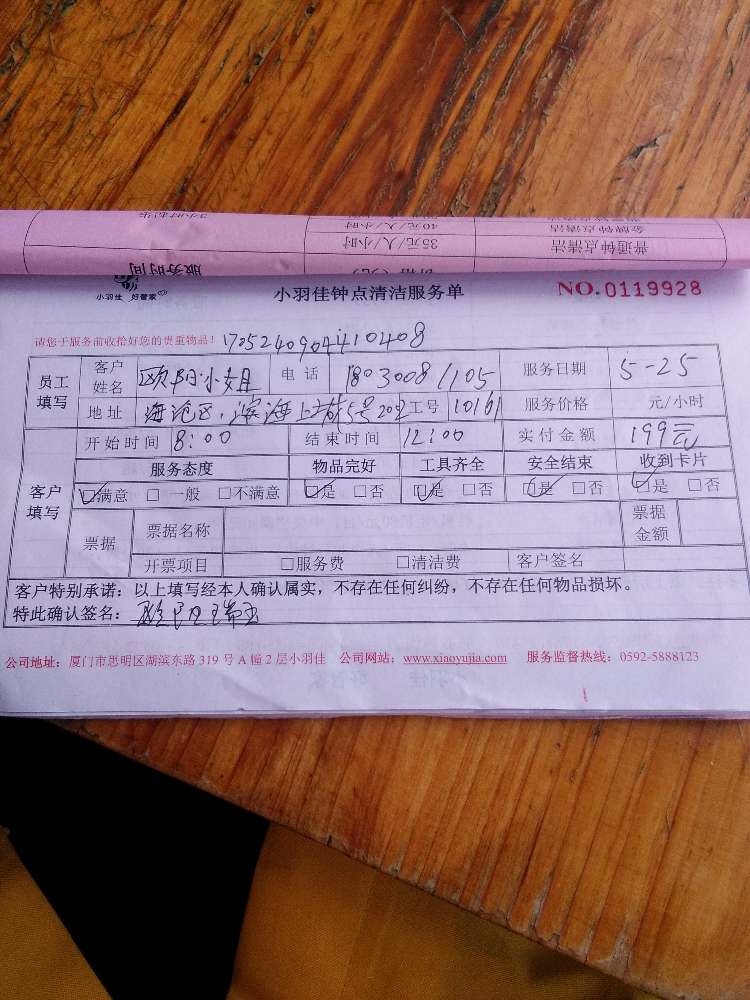 3小时起步
40元/人/小时
金牌钟点清洁
35元/人/小时
普通钟点清洁
服务时间
价格(元)
小羽佳 好管家
小羽佳钟点清洁服务单
NO.0119928
请您于服务前收拾好您的贵重物品! 1705240904410408
员工填写 客户姓名 欧阳小姐 电话 18030081105 服务日期 5-25
地址 海沧区,滨海上城5号 工号 10161 服务价格 元/小时
客户填写 开始时间 8:00 结束时间 12:00 实付金额 199元
服务态度 物品完好 工具齐全 安全结束 收到卡片
☑满意 □一般 □不满意 ☑是 □否 ☑是 □否 ☑是 □否 ☑是 □否
票据 票据名称 票据金额
开票项目 □服务费 □清洁费 客户签名
客户特别承诺:以上填写经本人确认属实,不存在任何纠纷,不存在任何物品损坏。
特此确认签名:
公司地址:厦门市思明区湖滨东路319号A幢2层小羽佳 公司网站:www.xiaoyujia.com 服务监督热线:0592-5888123